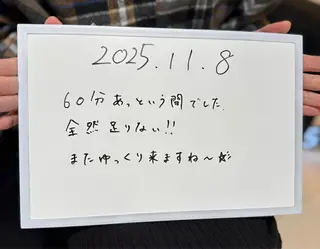 2025.11.8
60分あっという間でした.
全然足りない!!
またゆっくり来ますね〜☆彡